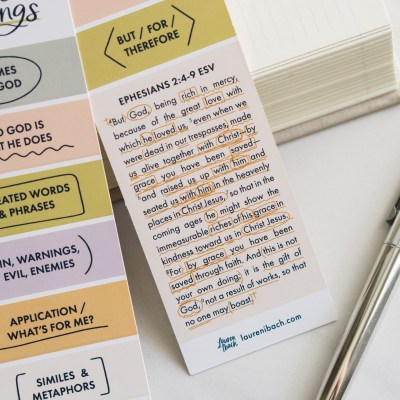 ngs
MES
GOD
O GOD IS
T HE DOES
EATED WORDS
& PHRASES
IN, WARNINGS,
EVIL, ENEMIES
APPLICATION /
WHAT'S FOR ME?
SIMILES &
METAPHORS
BUT / FOR /
THEREFORE
EPHESIANS 2:4-9 ESV
4But God, being rich in mercy,
because of the great love with
which he loved us, 5even when we
were dead in our trespasses, made
us alive together with Christ—by
grace you have been saved—
6and raised us up with him and
seated us with him in the heavenly
places in Christ Jesus, 7so that in the
coming ages he might show the
immeasurable riches of his grace in
kindness toward us in Christ Jesus.
8For by grace you have been
saved through faith. And this is not
your own doing; it is the gift of
God, 9not a result of works, so that
no one may boast.
lauren ibach laurenibach.com